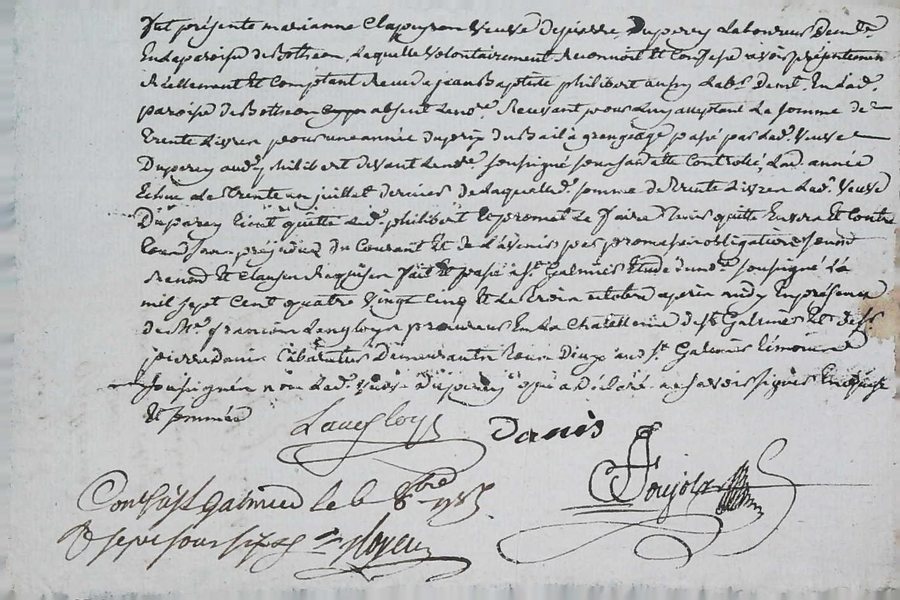 fut présente marianne Clapeyron veuve de pierre Duperey Laboureur Demt.
En La paroisse de Botheon Laquelle volontairement Reconnoit et Confesse avoir présentemen
Réellement Et Comptant Receu de jean Baptiste philibert aussy Labr. Demt. En Lad.
paroisse de Botheon absent Le no.re Recevant pour Luy acceptant La somme de
Trente Livres pour une année du prix du Bail à grangeage passé par Lad. veuve
Duperey aud. philibert devant Le no.re soussigné sous sa datte Controllé, Lad. année
Echue Le Trente un juillet dernier de Laquelle d. somme de Trente Livres Lad. veuve
Duperey tient quitte Led. philibert Et promet Le faire tenir quitte Envers Et Contre
tous sans préjudice du Courant Et de L'avenir par promesse obligations soumd
Renond Et Clauses Requises fait Et passé à St. Galmier Etude du no.re soussigné L'an
mil sept Cent quatre vingt Cinq Et Le trois octobre après midy En présence
de Me. françois Langloys procureur En La Chatellenie de St. Galmier Et de sr.
pierre Danis Cabaretier Demeurant aud. St. Galmier témoins
soussignés non Lad. veuve Duperey qui a Déclaré ne savoir signer Enquise
Et sommée
Langloys Danis
Cont. à St. galmier le 6 8bre 1785
R. sept sous six d.